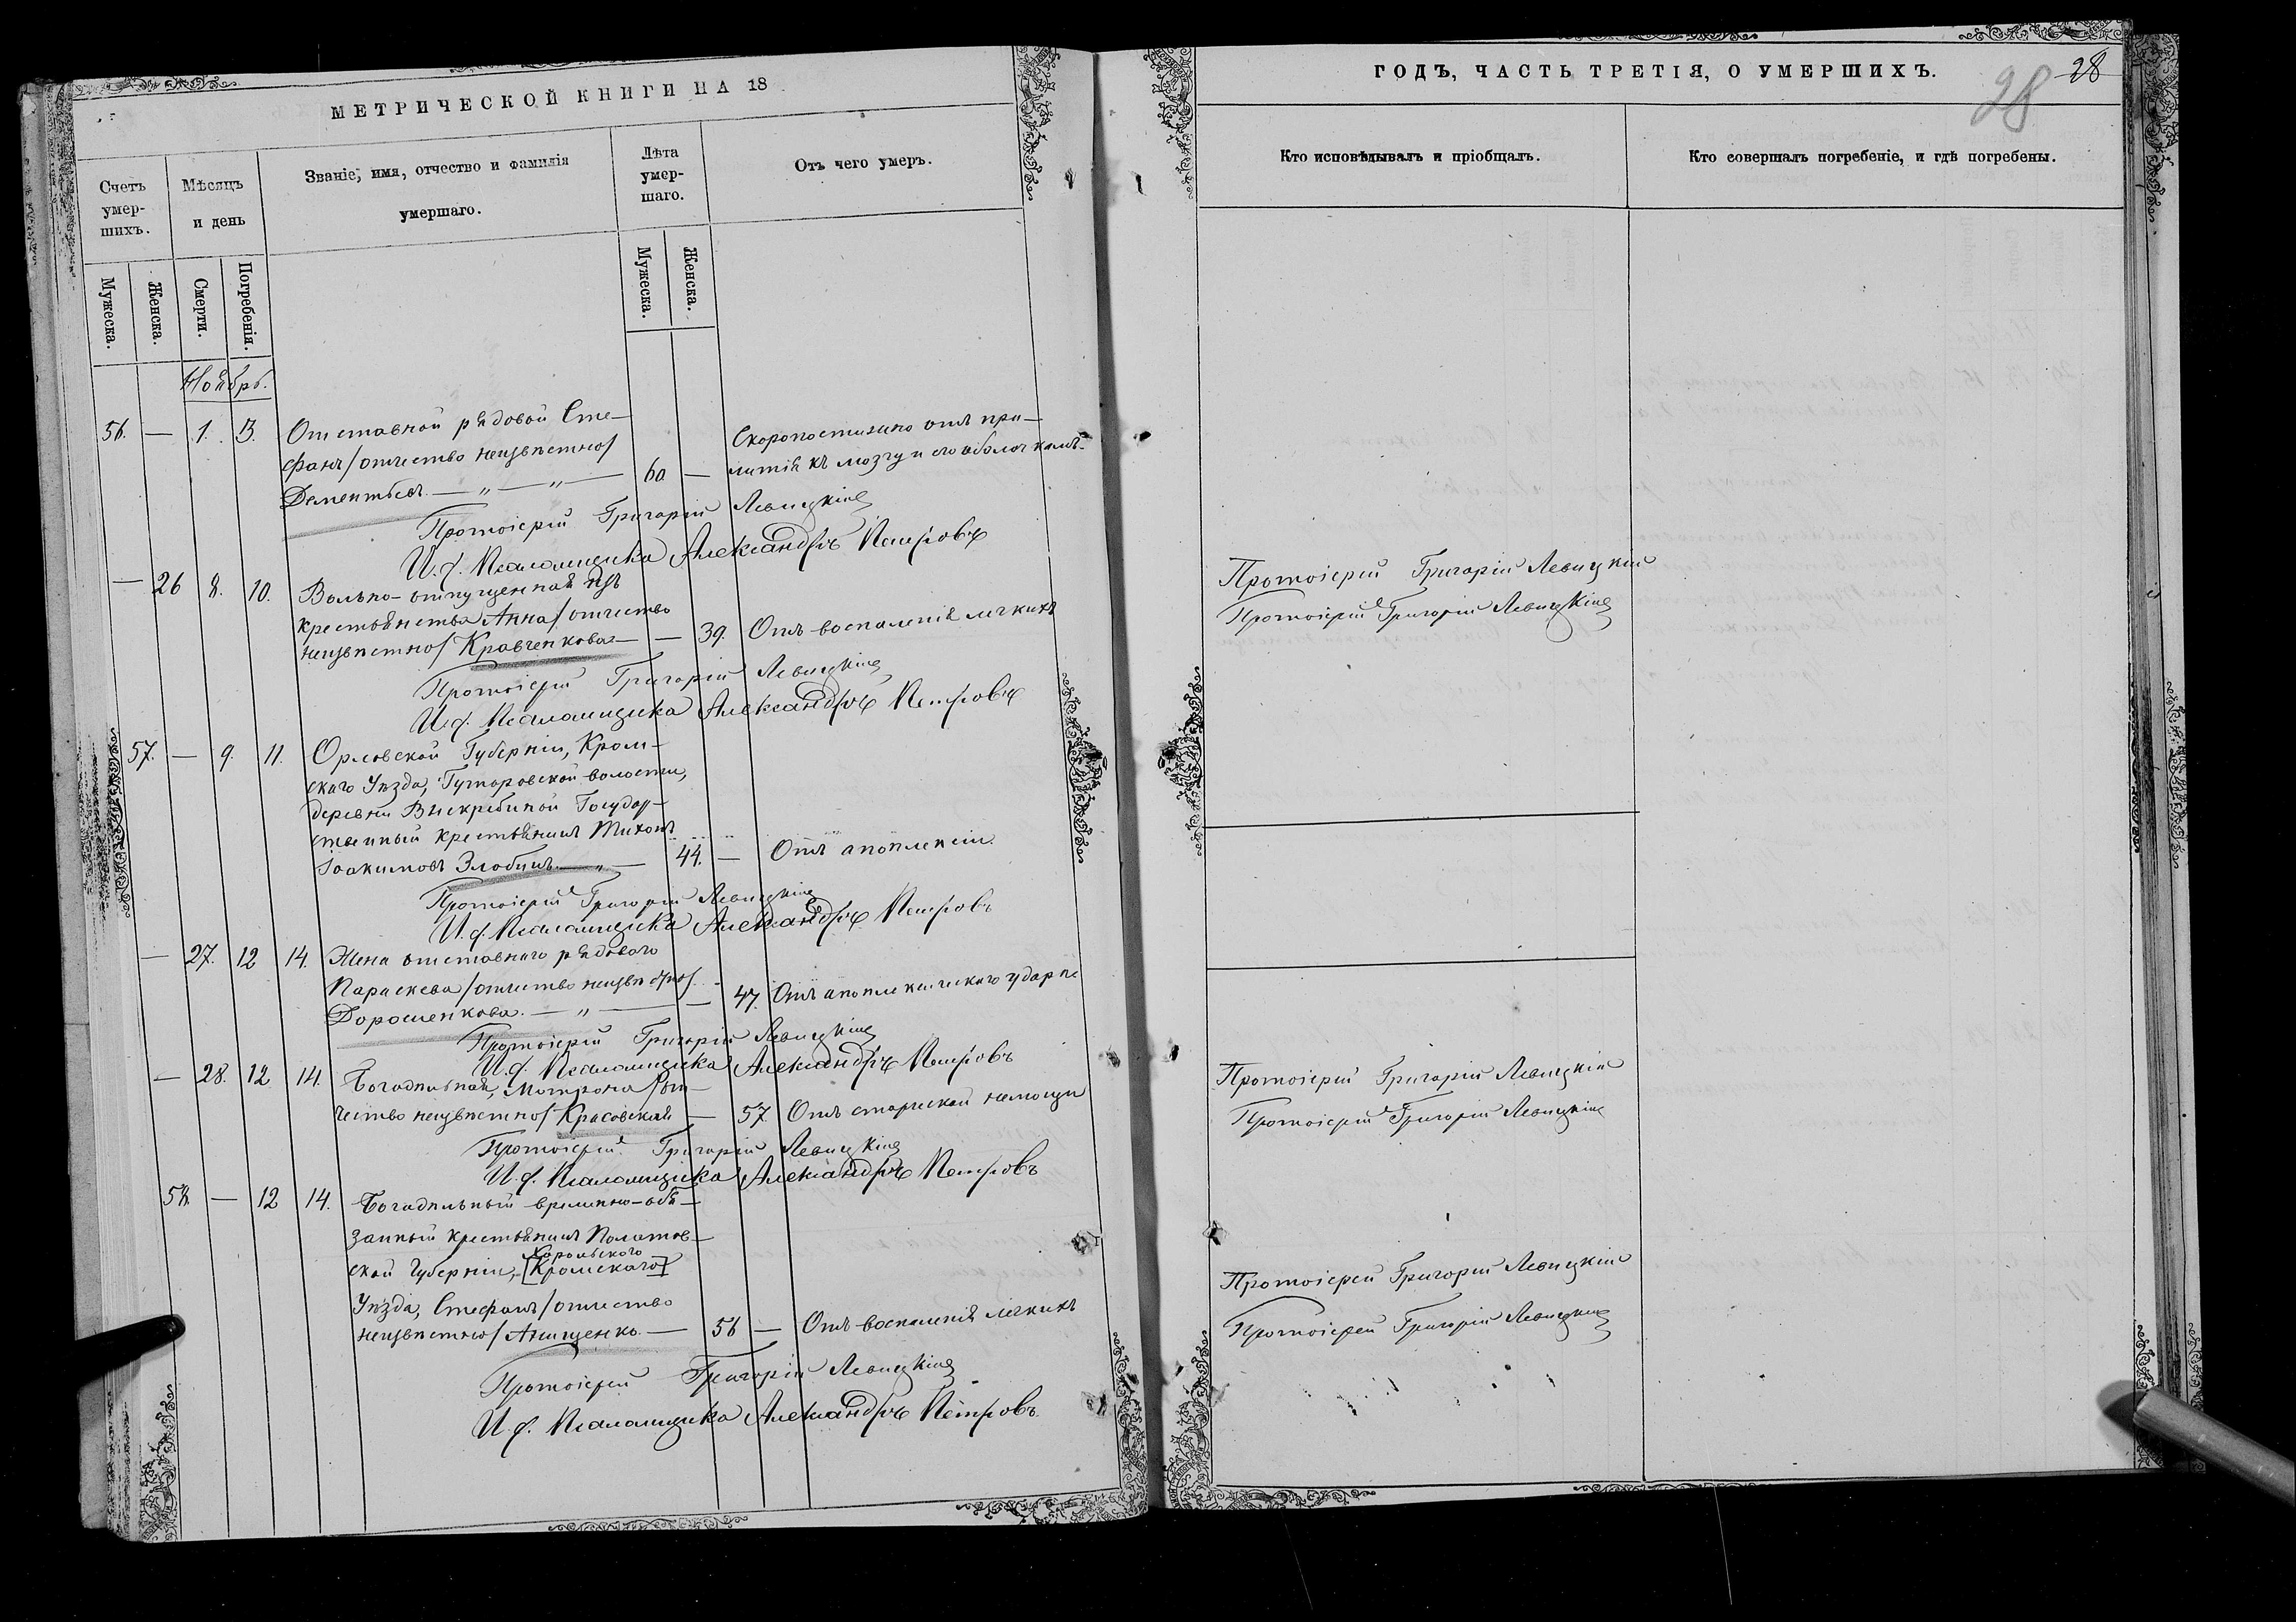 МЕТРИЧЕСКОЙ КНИГИ НА 18
Счетъ умер-шихъ.
Мѣсяцъ и день
Званіе, имя, отчество и фамилія умершаго.
Лѣта умер-шаго.
Отъ чего умеръ.
Мужеска.
Женска.
Смерти.
Погребенія.
Мужеска.
Женска.
Ноябрь.
56. — 1. 3. Отставной рядовой Сте-
фанъ /отчество неизвѣстно/
Дементьевъ. — „ — „ — 60 —
Скоропостижно отъ при-
литія къ мозгу и его оболочкамъ.
Протоіерей Григорій Левицкій
И. д. Псаломщика Александръ Петровъ
— 26 8. 10. Вольно-отпущенная изъ
крестьянства Анна /отчество
неизвѣстно/ Кравченкова — — 39. Отъ воспаленія легкихъ
Протоіерей Григорій Левицкій
И. д. Псаломщика Александръ Петровъ
57. — 9. 11. Орловской Губерніи, Кром-
скаго Уѣзда, Гуторовской волости,
деревни Выскребиной Государ-
ственный крестьянинъ Тихонъ
Іоакимовъ Злобинъ. — „ — 44. — Отъ апоплексіи.
Протоіерей Григорій Левицкій
И. д. Псаломщика Александръ Петровъ
— 27. 12 14. Жена отставнаго рядоваго
Параскева /отчество неизвѣстно/
Дорошенкова. — „ — — 47. Отъ апоплексическаго удара
Протоіерей Григорій Левицкій
И. д. Псаломщика Александръ Петровъ
— 28. 12 14. Богадѣльная, Матрона /от-
чество неизвѣстно/ Красовская — 57. Отъ старческой немощи
Протоіерей Григорій Левицкій
И. д. Псаломщика Александръ Петровъ
58. — 12 14. Богадѣльный временно-обя-
занный крестьянинъ Полтав-
Хорольскаго
ской Губерніи, [Кромскаго]
Уѣзда, Стефанъ /отчество
неизвѣстно/ Анищенко. — 56 — Отъ воспаленія легкихъ
Протоіерей Григорій Левицкій
И. д. Псаломщика Александръ Петровъ.
ГОДЪ, ЧАСТЬ ТРЕТІЯ, О УМЕРШИХЪ.
28
28
Кто исповѣдывалъ и пріобщалъ.
Кто совершалъ погребеніе, и гдѣ погребены.
Протоіерей Григорій Левицкій
Протоіерей Григорій Левицкій
Протоіерей Григорій Левицкій
Протоіерей Григорій Левицкій
Протоіерей Григорій Левицкій
Протоіерей Григорій Левицкій